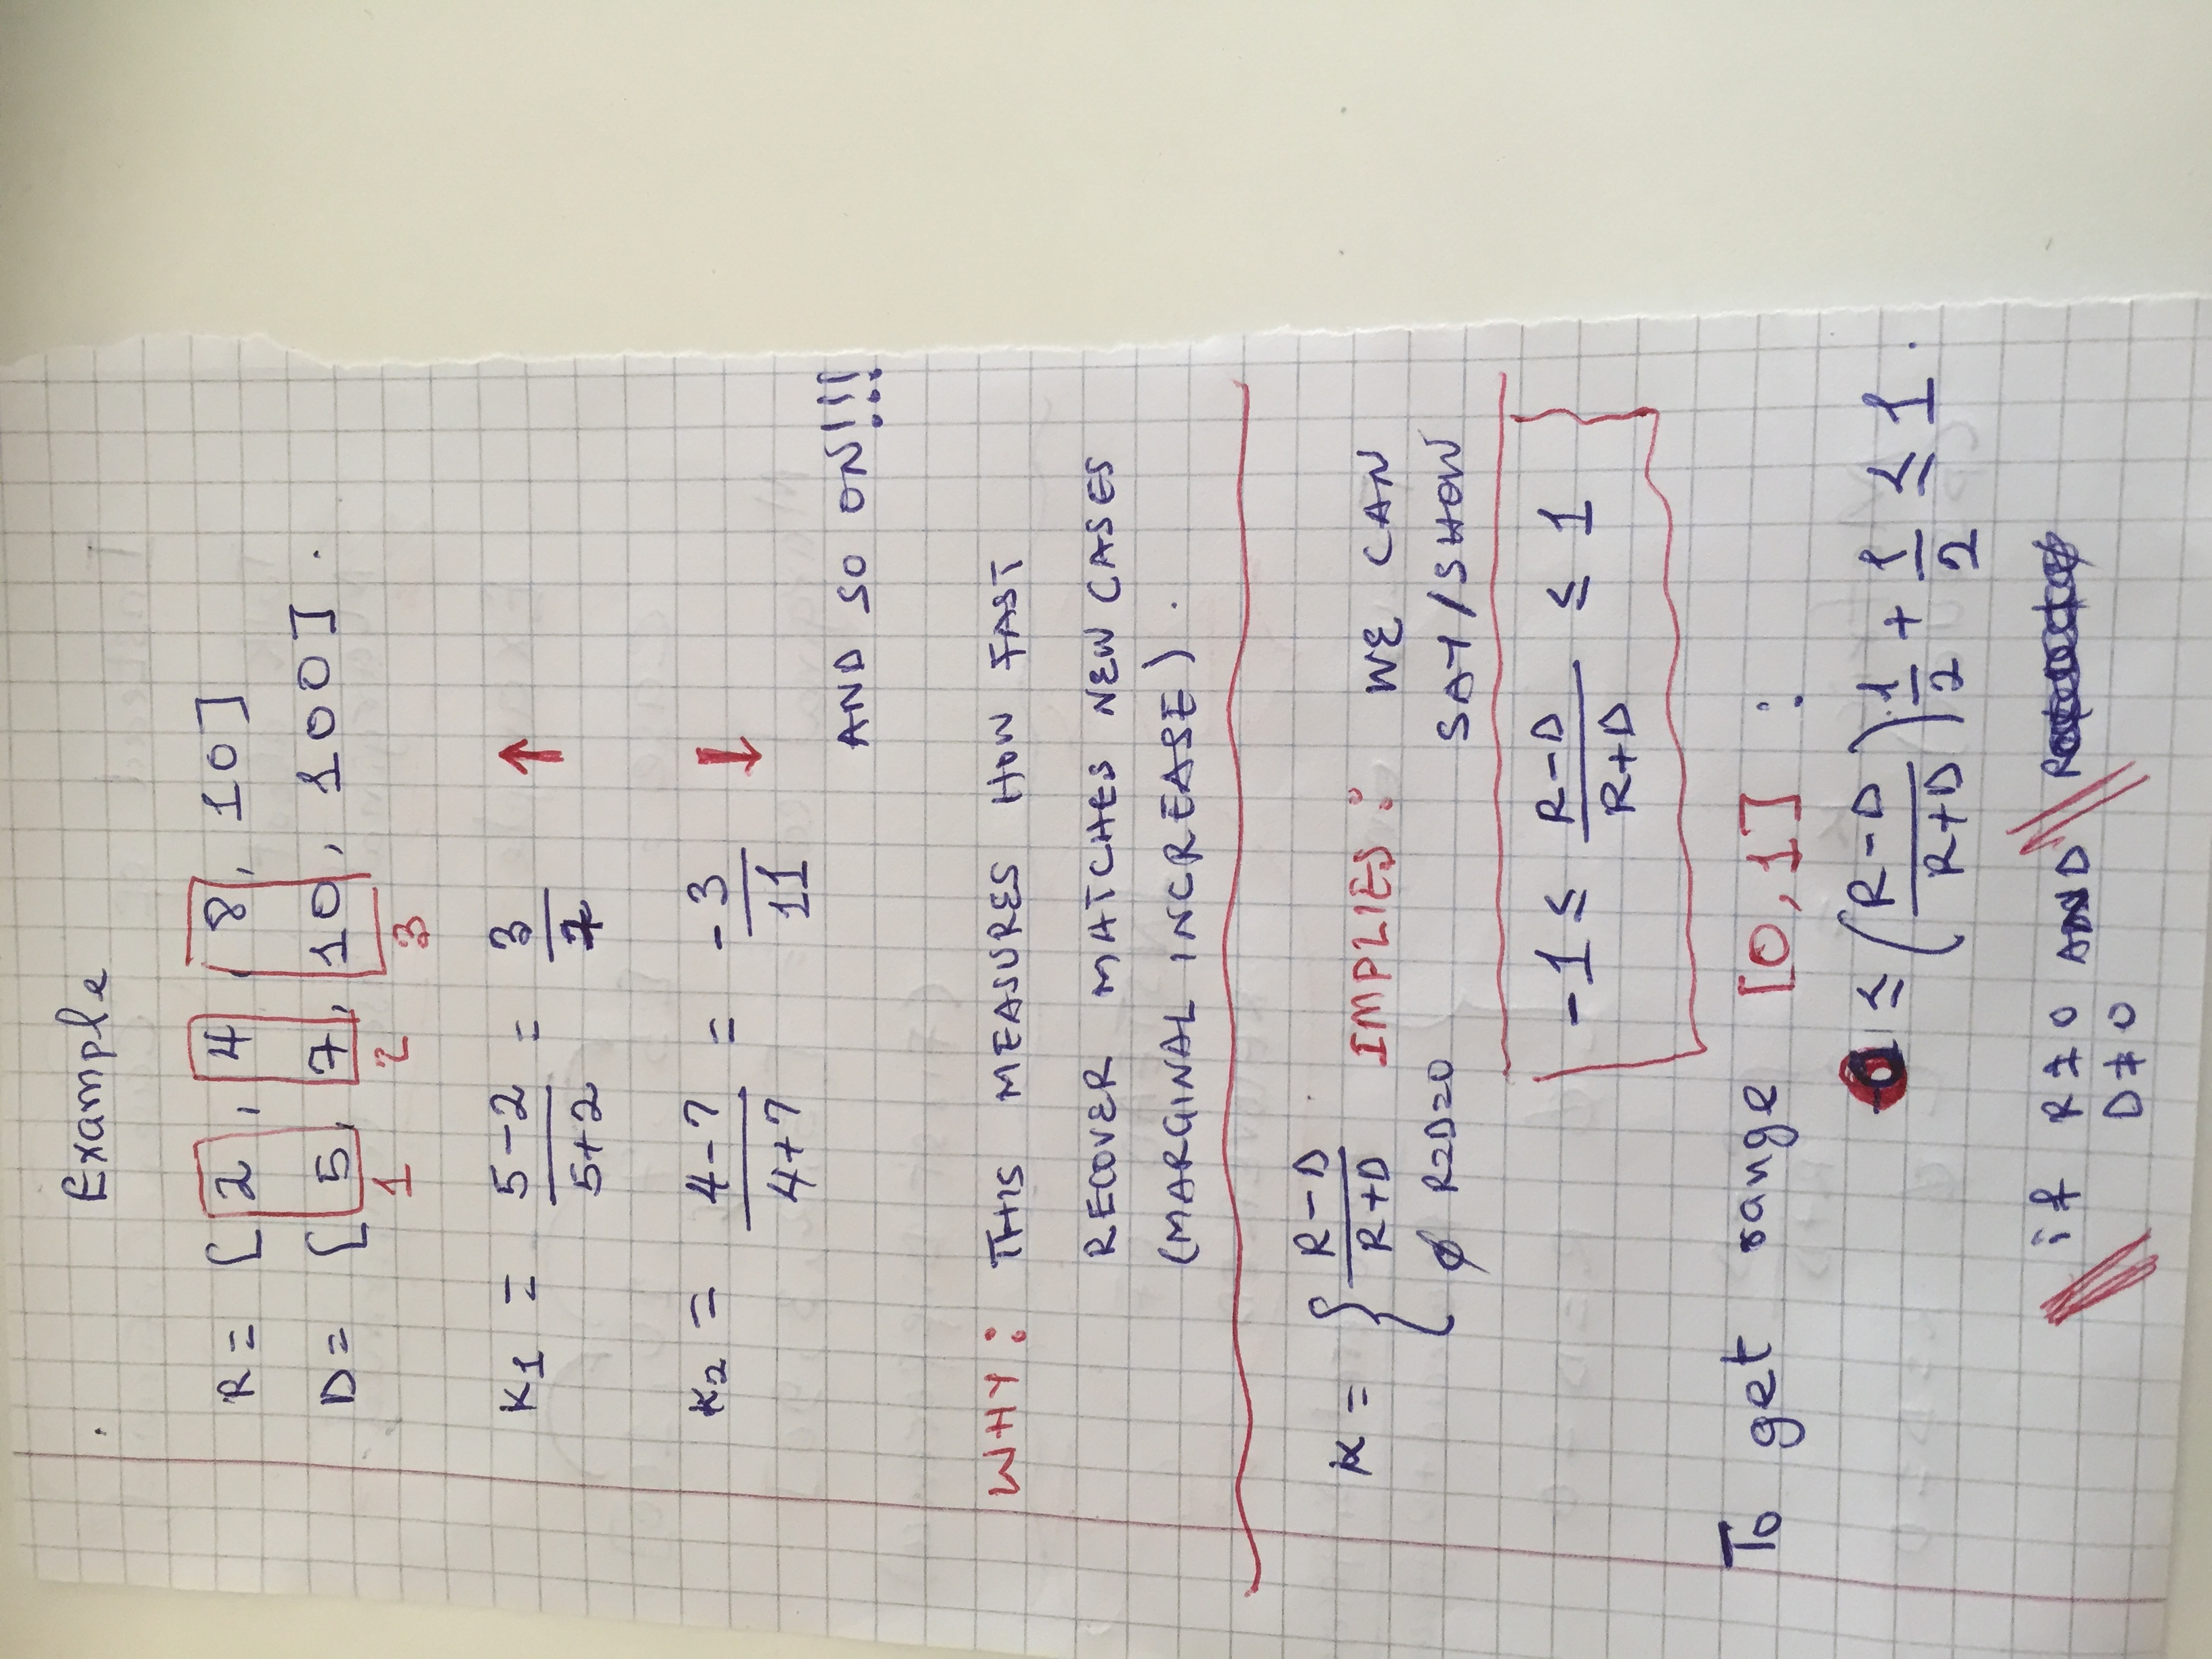 Example
R = [ 2 , 4 , 8 , 10 ]
D = [ 5 , 7 , 10 , 100 ] .
1 2 3
K1 = 5-2 / 5+2 = 3 / 7 ↑
K2 = 4-7 / 4+7 = -3 / 11 ↓
AND SO ON!!!
WHY : THIS MEASURES HOW FAST
RECOVER MATCHES NEW CASES
(MARGINAL INCREASE) .
K = { R-D / R+D IMPLIES : WE CAN
∅ R=D=0 SAY/SHOW
-1 ≤ R-D / R+D ≤ 1
To get range [0,1] :
0 ≤ ( R-D / R+D ) 1/2 + 1/2 ≤ 1 .
if R ≠ 0 AND
D ≠ 0